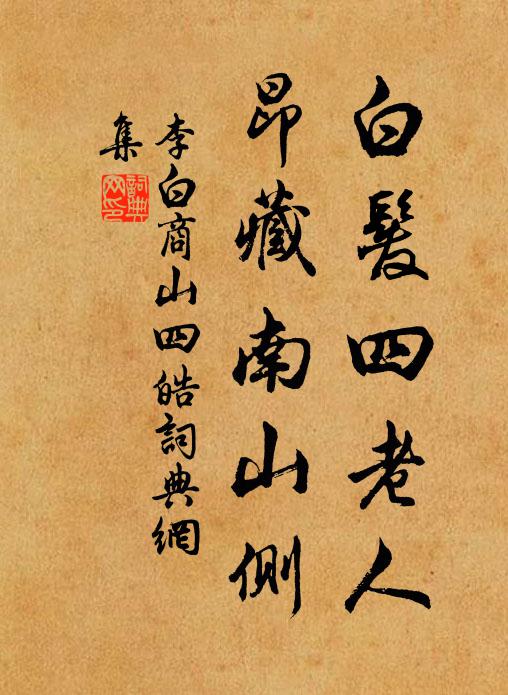 白髮四老人
昂藏南山側
李白商山四皓詞典網
集
詞典
网印